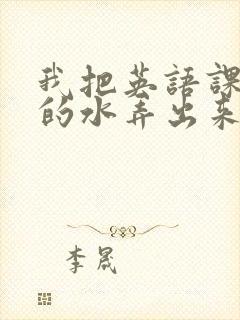 我把英語課
的水弄出來
李晟